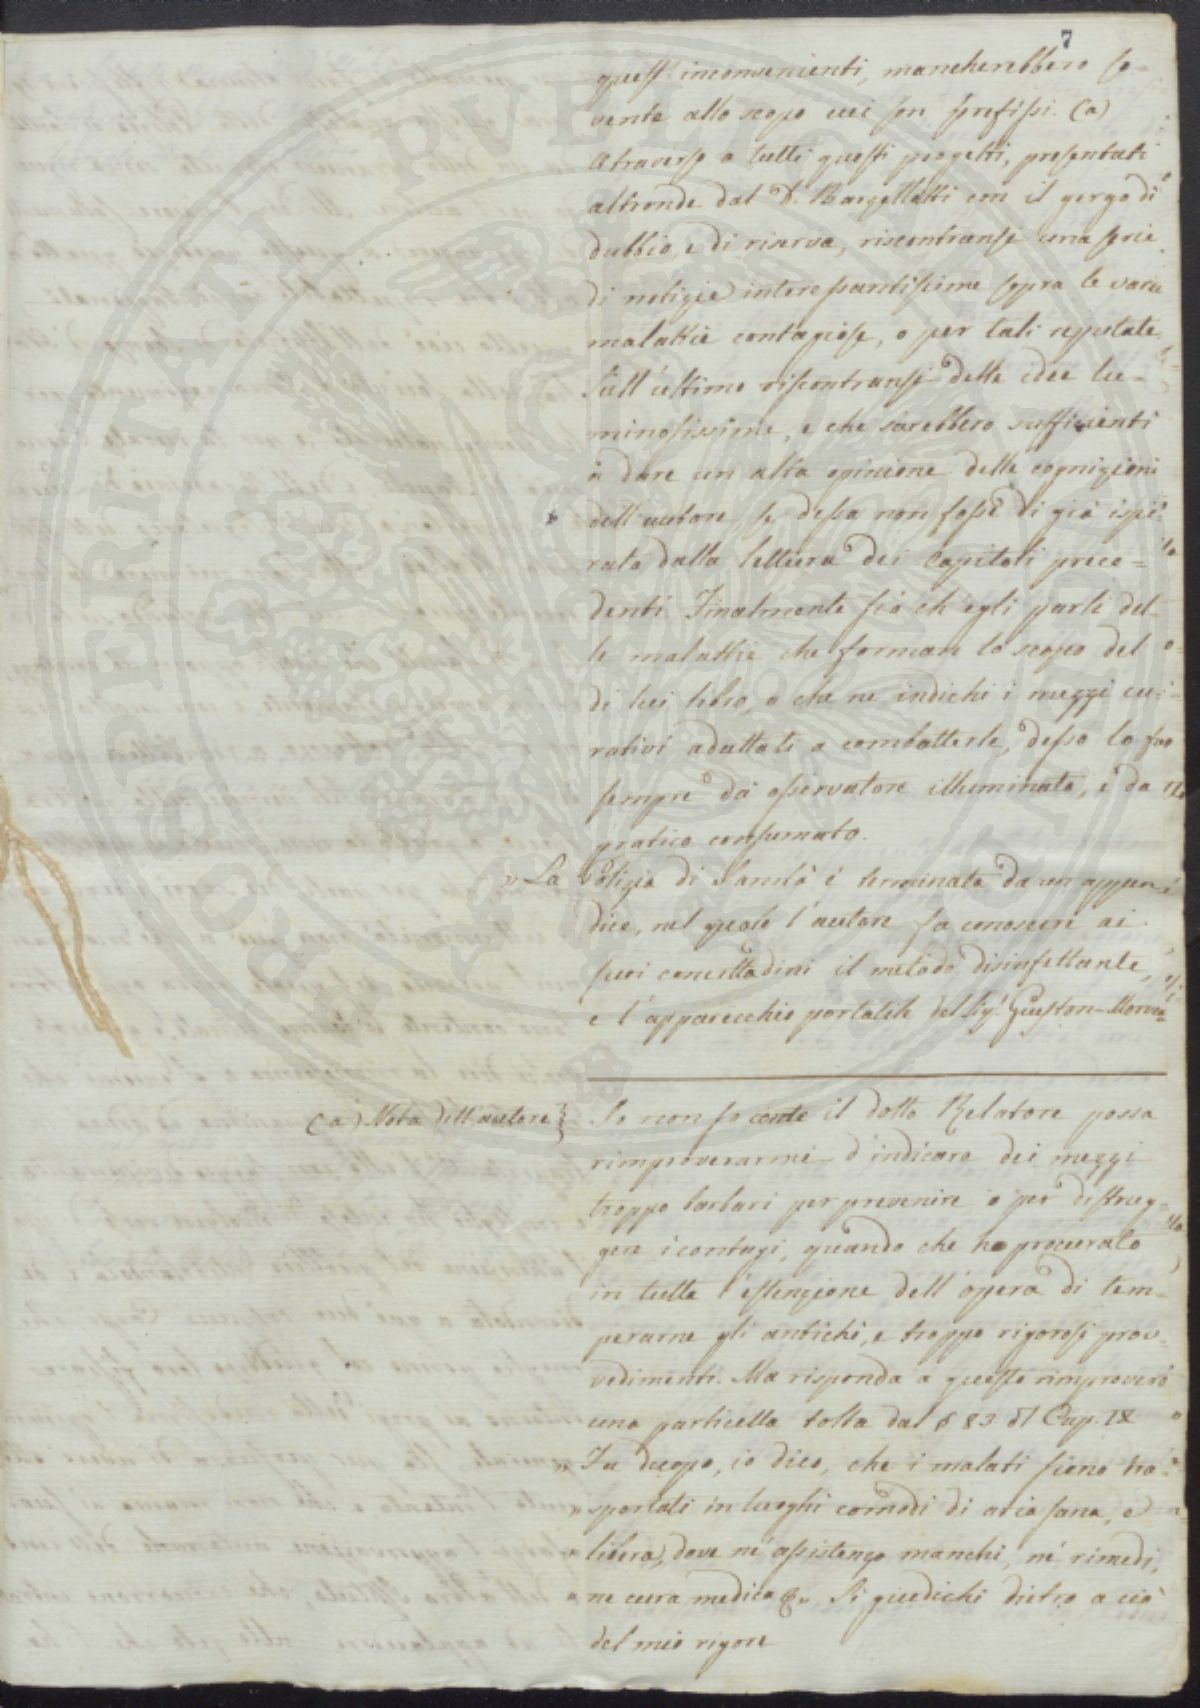 7
quest' inconvenienti, mancherebbero so-
vente allo scopo cui son prefissi. (a)
Atraverso a tutti questi progetti, presentati
altronde dal D. Barzellotti con il gergo di
dubbio, e di riserva, riscontransi una serie
di notizie interessantissime sopra le varie
malattie contagiose, o per tali reputate.
Sull'ultimo riscontransi delle idee lu-
minosissime, e che sarebbero sufficienti
a dare un alta opinione delle cognizioni
dell'autore se dessa non fosse di già ispi-
rata dalla lettura dei Capitoli prece-
denti. Finalmente sia ch'egli parli del-
le malattie che formano lo scopo del
di lui libro, o che ne indichi i mezzi cu-
rativi adattati a combatterle, desso lo fa
sempre da osservatore illuminato, e da
pratico consumato.
" La Polizia di Sanità è terminata da un appen-
dice, nel quale l'autore fa conoscere ai
suoi concittadini il metodo disinfettante,
e l'apparecchio portatile del Sig.r Guyton-Morveau
(a) Nota dell'autore} Io non so come il dotto Relatore possa
rimproverarmi d'indicare dei mezzi
troppo barbari per prevenire o per distrug-
gere i contagi, quando che ho procurato
in tutta l'estenzione dell'opera di tem-
perarne gli antichi, e troppo rigorosi prov-
vedimenti. Ma risponda a questo rimprovero
una particella tolta dal § 83 dl Cap. IX
" Fa duopo, io dico, che i malati sieno tra-
" sportati in luoghi comodi di aria sana, e
" libera, dove nè assistenza manchi, nè rimedi,
" ne cura medica &. " Si giudichi dietro a ciò
del mio rigore